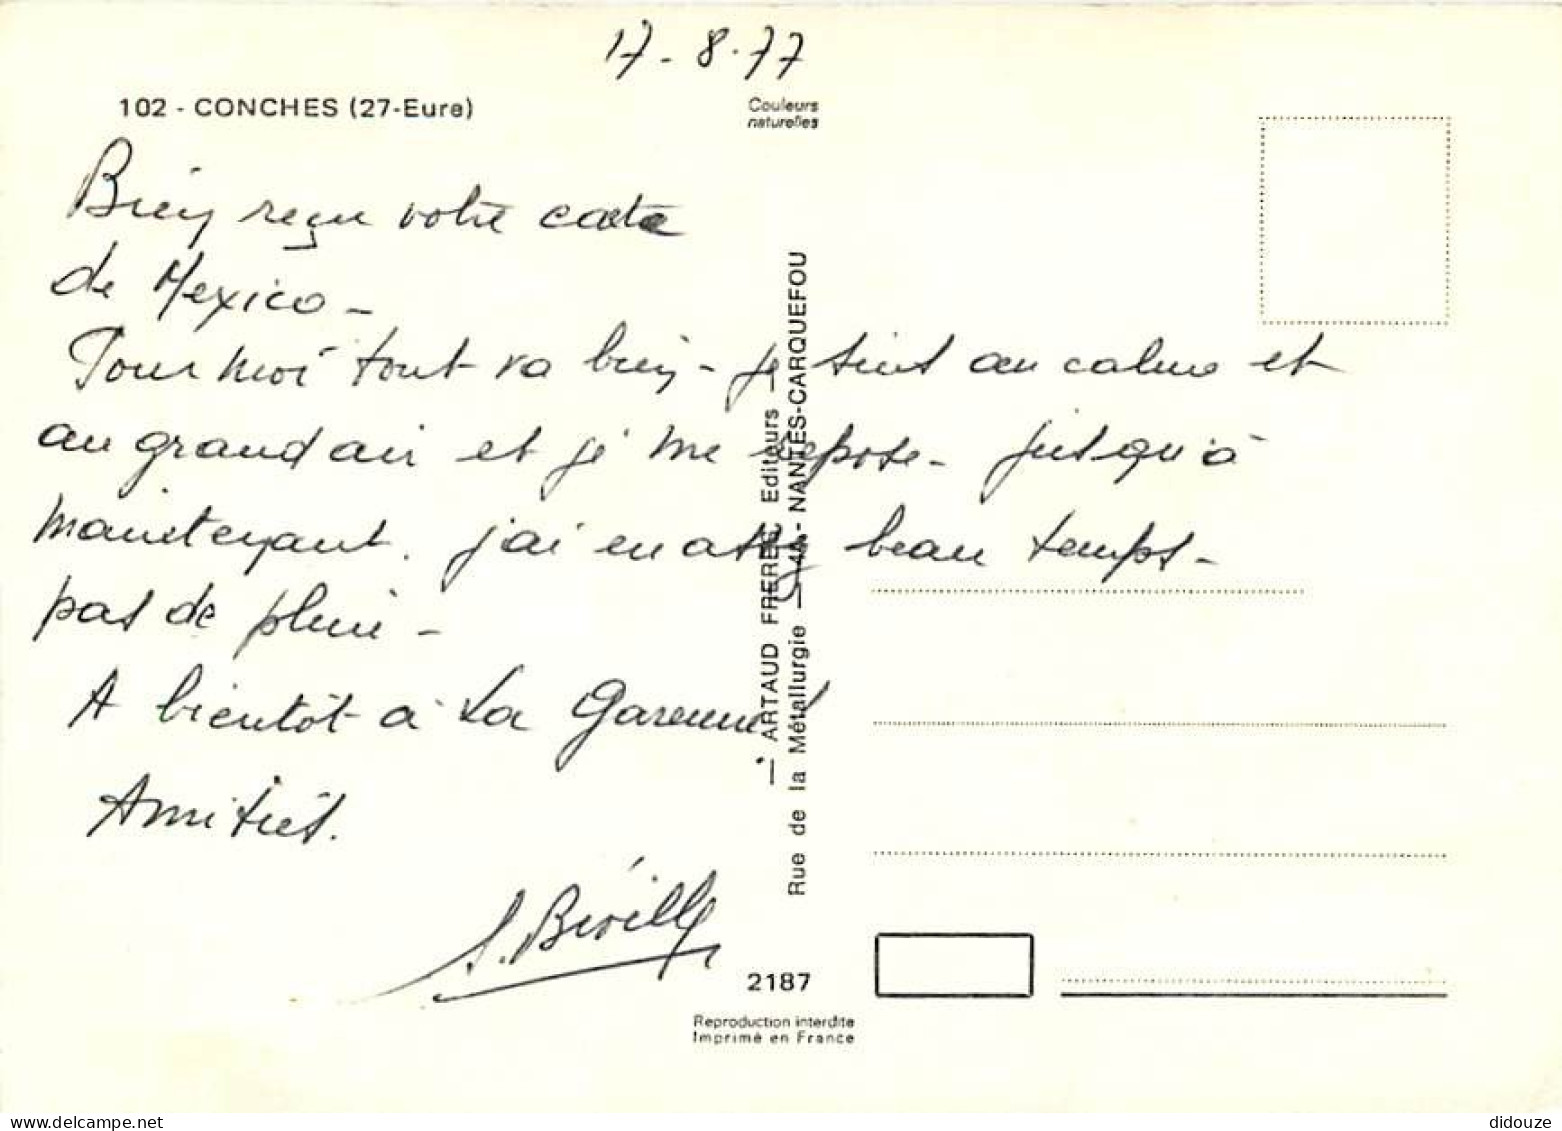 17-8-77
102 - CONCHES (27-Eure)
Couleurs
naturelles
Bien reçu votre carte
de Mexico -
Pour moi tout va bien - je suis au calme et
au grand air et je me repose - jusqu'à
maintenant. j'ai eu assez beau temps -
pas de pluie -
A bientôt à La Garenne !
Amitiés.
— ARTAUD FRERES, Editeurs —
Rue de la Métallurgie — 44 - NANTES-CARQUEFOU
2187
Reproduction interdite
Imprimé en France
didouze